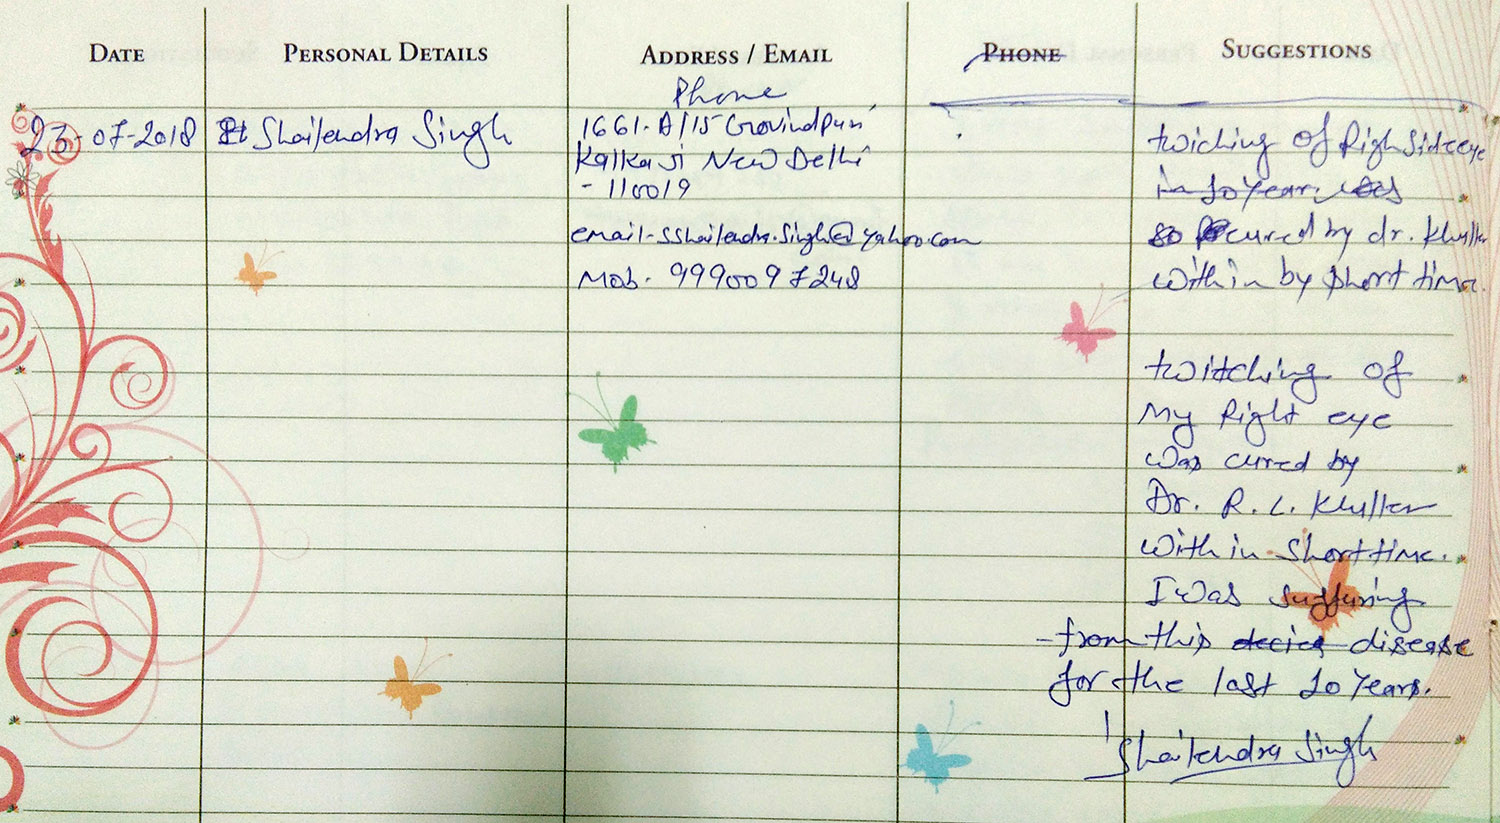 DATE PERSONAL DETAILS ADDRESS / EMAIL PHONE SUGGESTIONS
Phone
23-07-2018 Shailendra Singh
1661-A/15 Govindpuri
Kalkaji New Delhi
- 110019
email-sshailendra.singh@yahoo.com
Mob. 9990097248
twiching of Righ Side eye
in 10 year
so cured by dr. Khuller
within by short time.
twitching of
My Right eye
was cured by
Dr. R. L. Khuller
within short time.
I was suffering
from this disease
for the last 10 years.
Shailendra Singh